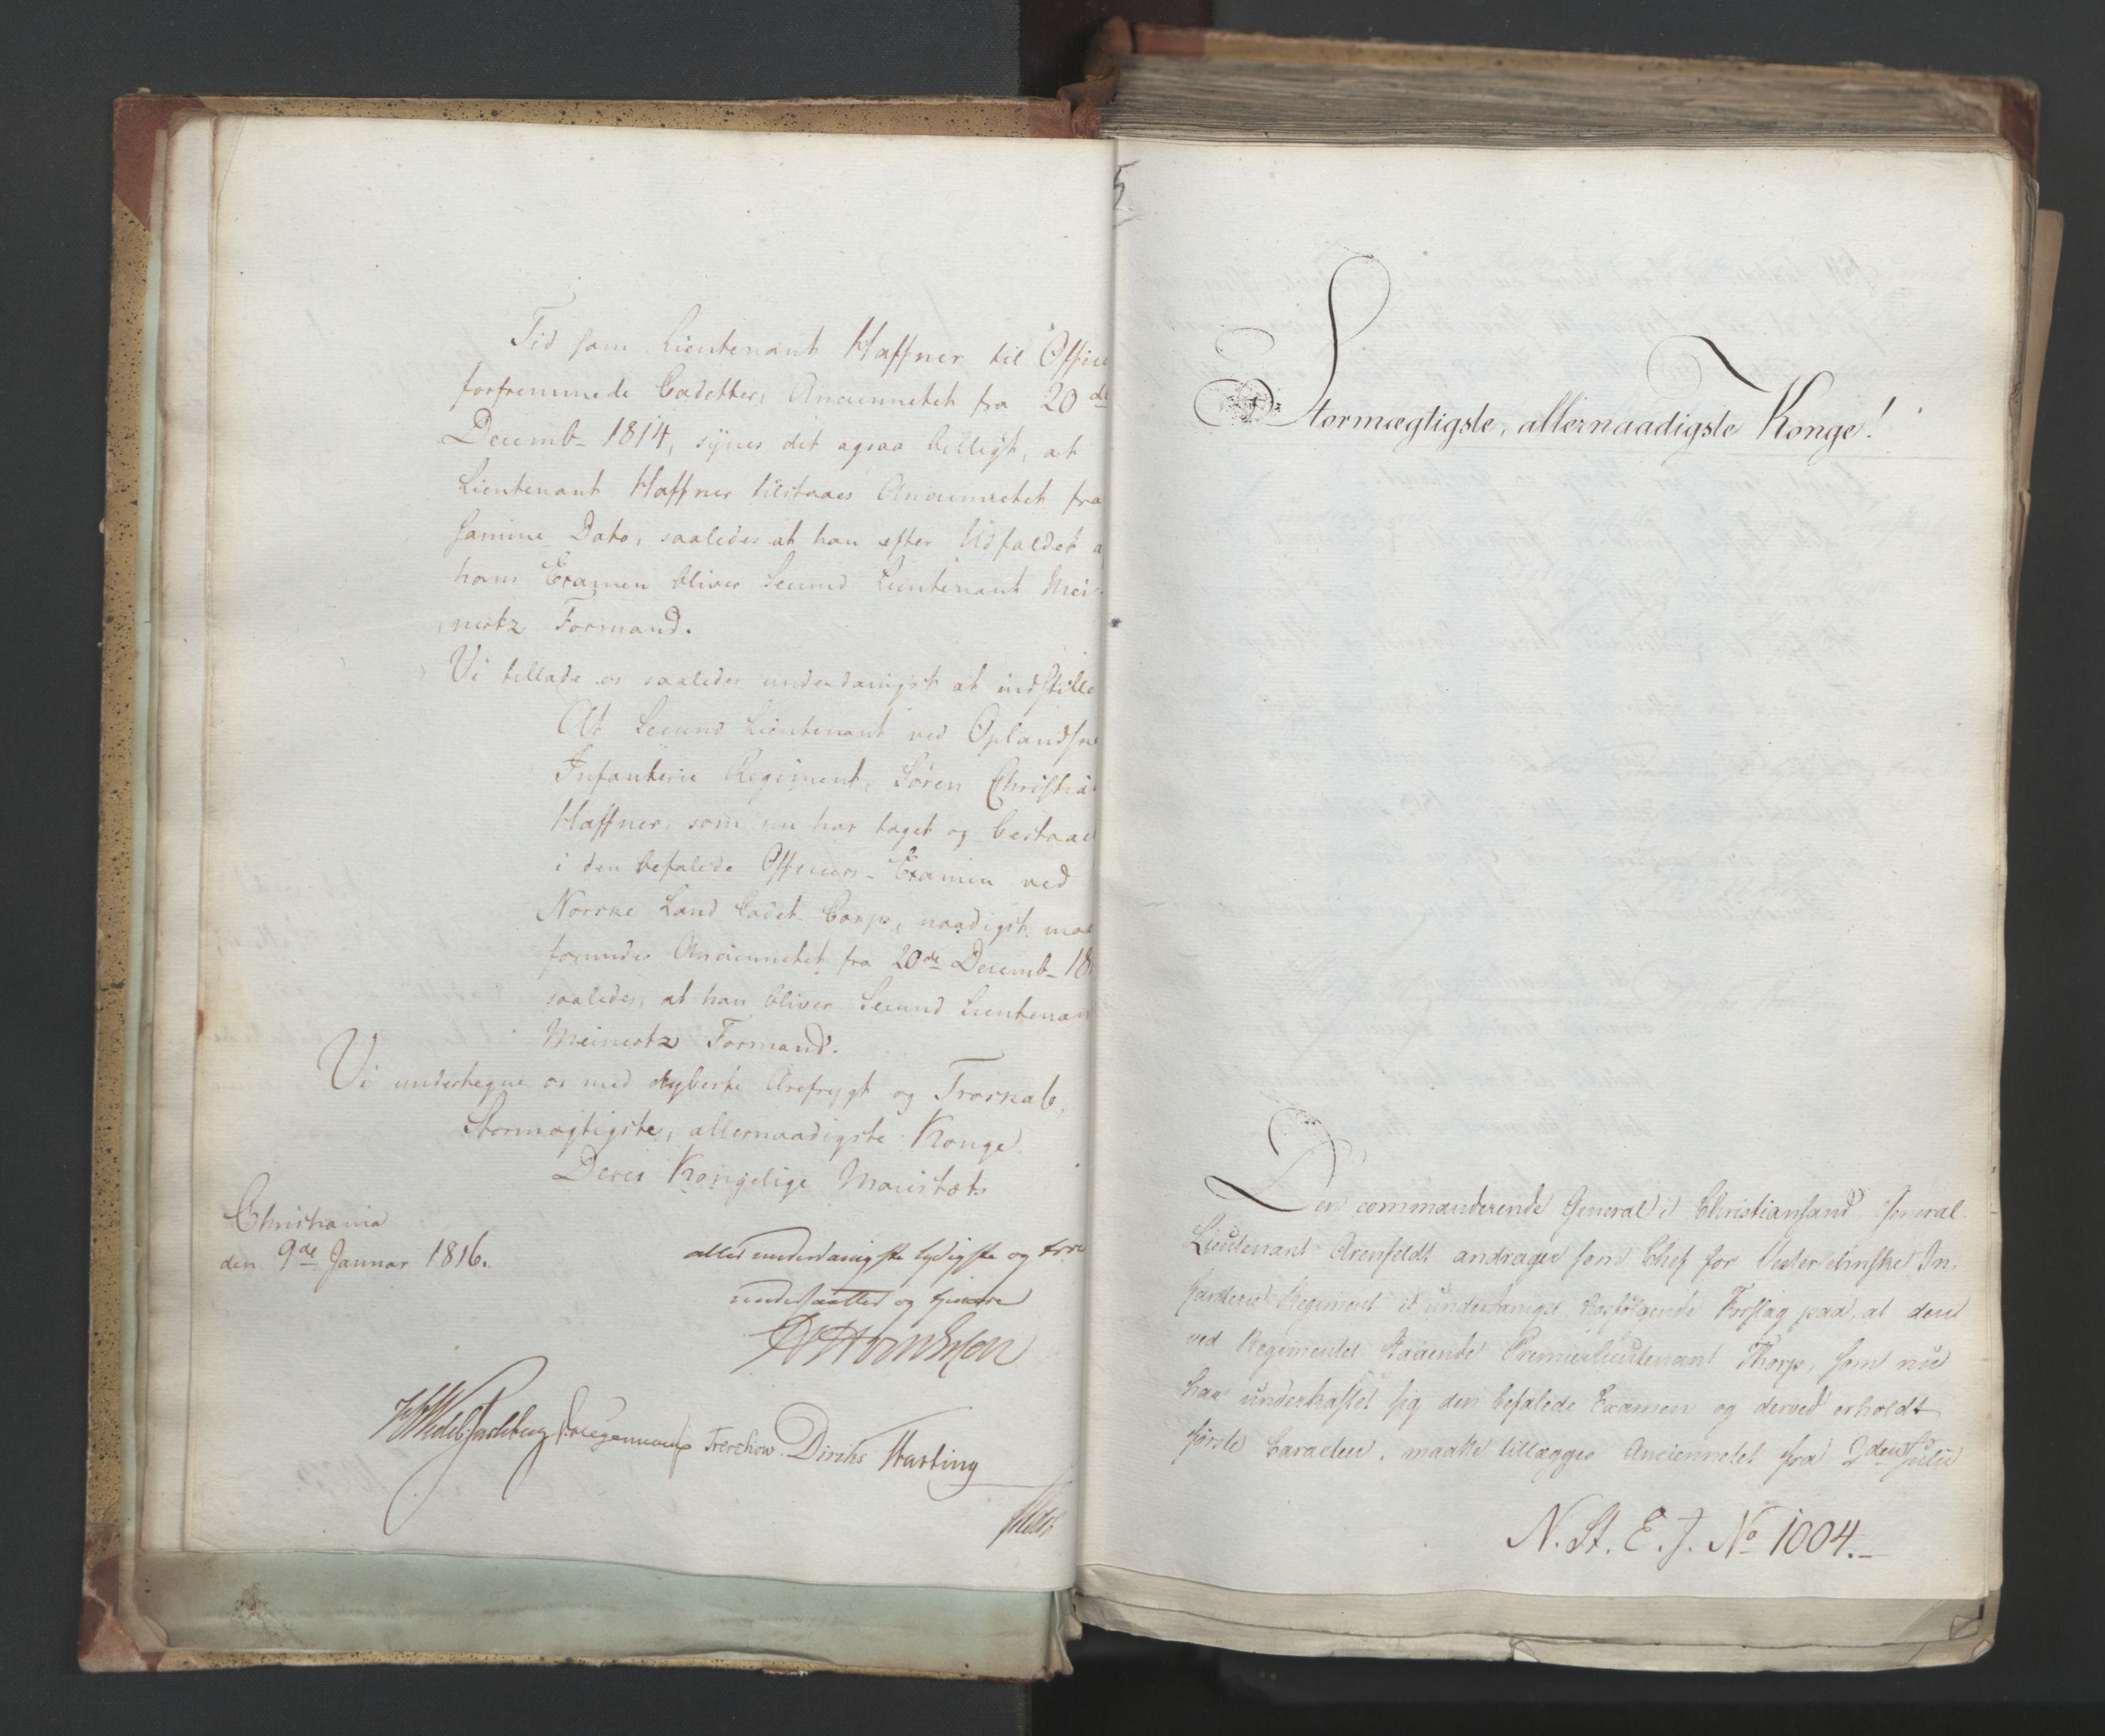 Tid som Lieutenant Haffner til Office
forfremmede Cadetter, Anciennetet fra 20de
Decemb- 1814, synes det ogsaa billigt, at
Lieutenant Haffner tilstaaes Anciennetet fra
samme Dato, saaledes at han efter Udfaldet a
hans Examen bliver Secund Lieutenant Mei-
nertz Formand.
Vi tillade os saaledes underdanigst at indstille
At Secund Lieutenant ved Oplandske
Infanterie Regiment, Sören Christia
Haffner, som nu har taget og bestaae
i den befalede Officiers-Examen ved
Norske Land Cadet-Corps, naadigst maa
forundes Anciennetet fra 20de Decemb- 18
saaledes, at han bliver Secund Lieutenan
Meinertz Formand.
Vi undertegne os med dybeste Ærefrygt og Troskab,
Stormægtigste, allernaadigste Konge
Deres Kongelige Majestæts
Christiania
den 9de Januar 1816.
allerunderdanigste lydigste og troe
undersaatter og tjenere
Krogh Treschow Diriks Hasting
5
Stormægtigste, allernaadigste Konge!
Den commanderende General i Christiansand, General
Lieutenant Arenfeldt andrager som Chef for Vesterlehnske In-
fanterie Regiment i et underdanigst hosfölgende Forslag paa, at den
ved Regimentet staaende Premierlieutenant Thorp, som nu
har underkastet sig den befalede Examen og derved erholdt
förste Caracteer, maatte tillægges Anciennetet fra 2den Julii
N. St. E. J. No 1004.-